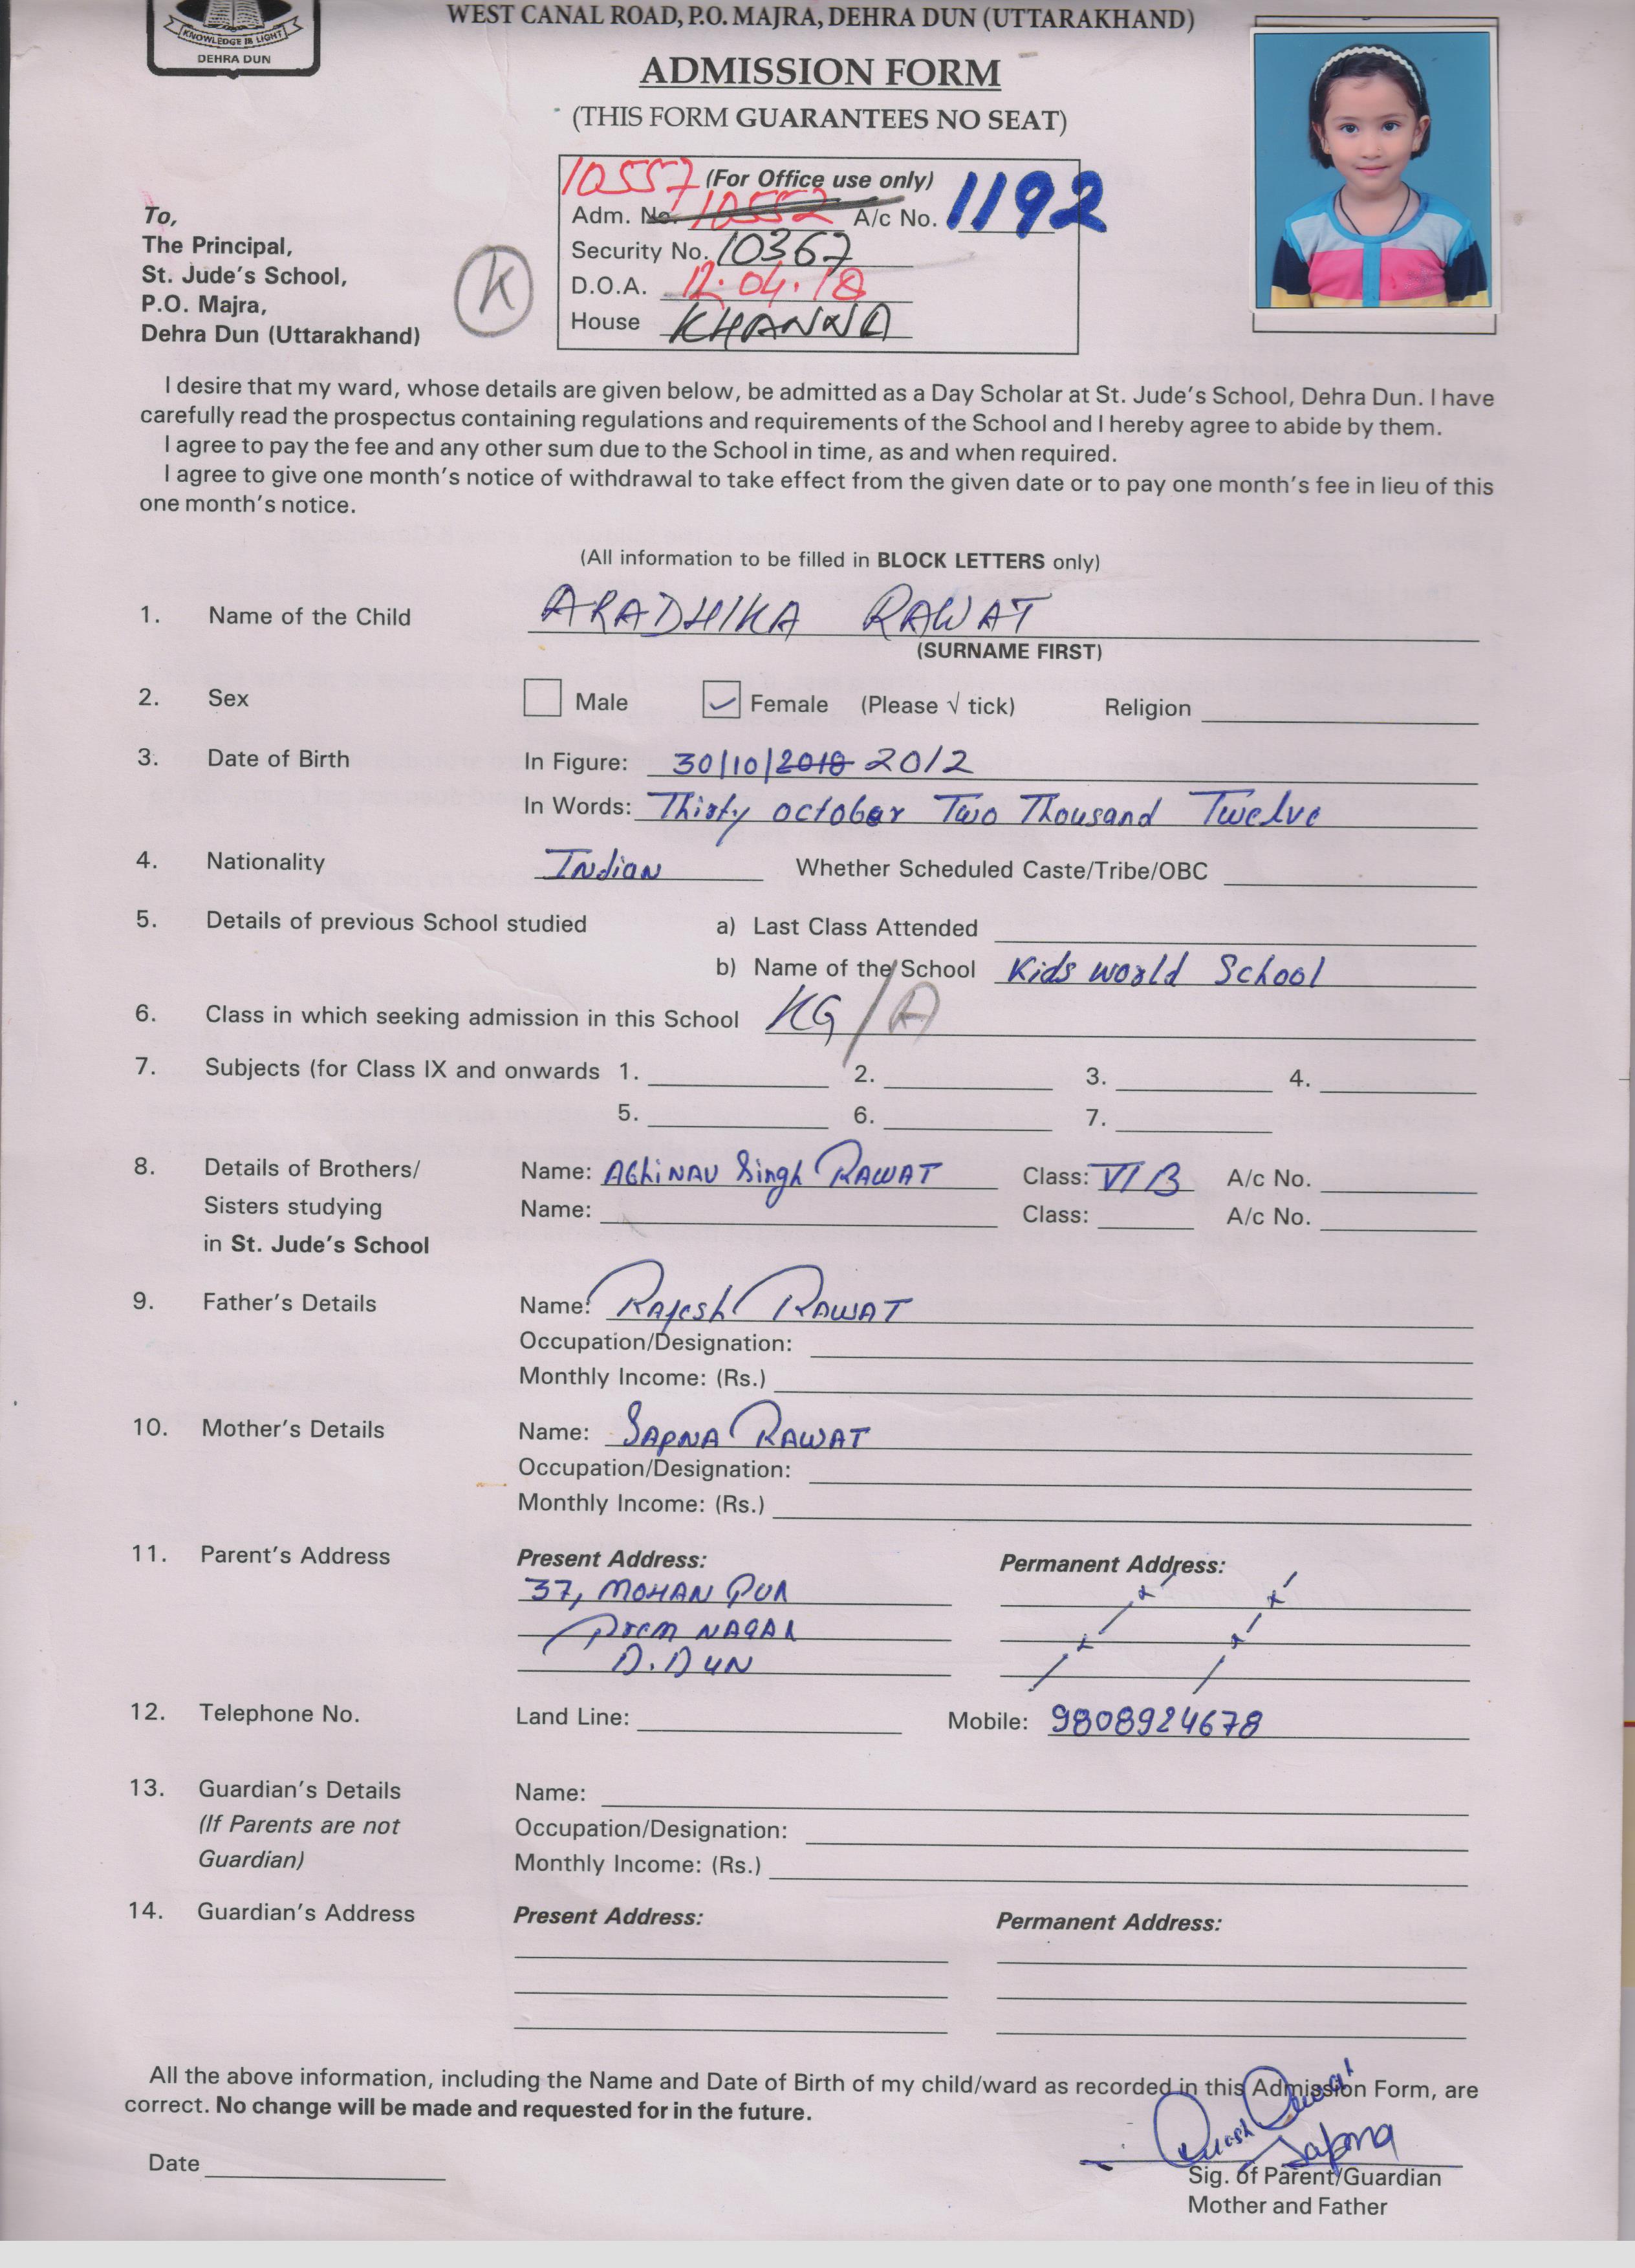 KNOWLEDGE IS LIGHT
DEHRA DUN
WEST CANAL ROAD, P.O. MAJRA, DEHRA DUN (UTTARAKHAND)
ADMISSION FORM
(THIS FORM GUARANTEES NO SEAT)
10557 (For Office use only)
Adm. No. 10552 A/c No. 1192
Security No. 10367
D.O.A. 12.04.18
House KHANNA
To,
The Principal,
St. Jude's School,
P.O. Majra,
Dehra Dun (Uttarakhand)
K
I desire that my ward, whose details are given below, be admitted as a Day Scholar at St. Jude's School, Dehra Dun. I have
carefully read the prospectus containing regulations and requirements of the School and I hereby agree to abide by them.
I agree to pay the fee and any other sum due to the School in time, as and when required.
I agree to give one month's notice of withdrawal to take effect from the given date or to pay one month's fee in lieu of this
one month's notice.
(All information to be filled in BLOCK LETTERS only)
1. Name of the Child ARADHIKA RAWAT
(SURNAME FIRST)
2. Sex Male Female (Please √ tick) Religion
3. Date of Birth In Figure: 30/10/2018 2012
In Words: Thirty october Two Thousand Twelve
4. Nationality Indian Whether Scheduled Caste/Tribe/OBC
5. Details of previous School studied a) Last Class Attended
b) Name of the School Kids world School
6. Class in which seeking admission in this School KG/A
7. Subjects (for Class IX and onwards 1. 2. 3. 4.
5. 6. 7.
8. Details of Brothers/ Name: AbhiNAV Singh RAWAT Class: VI B A/c No.
Sisters studying Name: Class: A/c No.
in St. Jude's School
9. Father's Details Name: Rajesh RAWAT
Occupation/Designation:
Monthly Income: (Rs.)
10. Mother's Details Name: SAPNA RAWAT
Occupation/Designation:
Monthly Income: (Rs.)
11. Parent's Address Present Address: Permanent Address:
37, MOHAN PUR
Prem NAGAR
D.DUN
12. Telephone No. Land Line: Mobile: 9808924678
13. Guardian's Details Name:
(If Parents are not Occupation/Designation:
Guardian) Monthly Income: (Rs.)
14. Guardian's Address Present Address: Permanent Address:
All the above information, including the Name and Date of Birth of my child/ward as recorded in this Admission Form, are
correct. No change will be made and requested for in the future.
Rajesh Rawat
Sapna
Date
Sig. of Parent/Guardian
Mother and Father